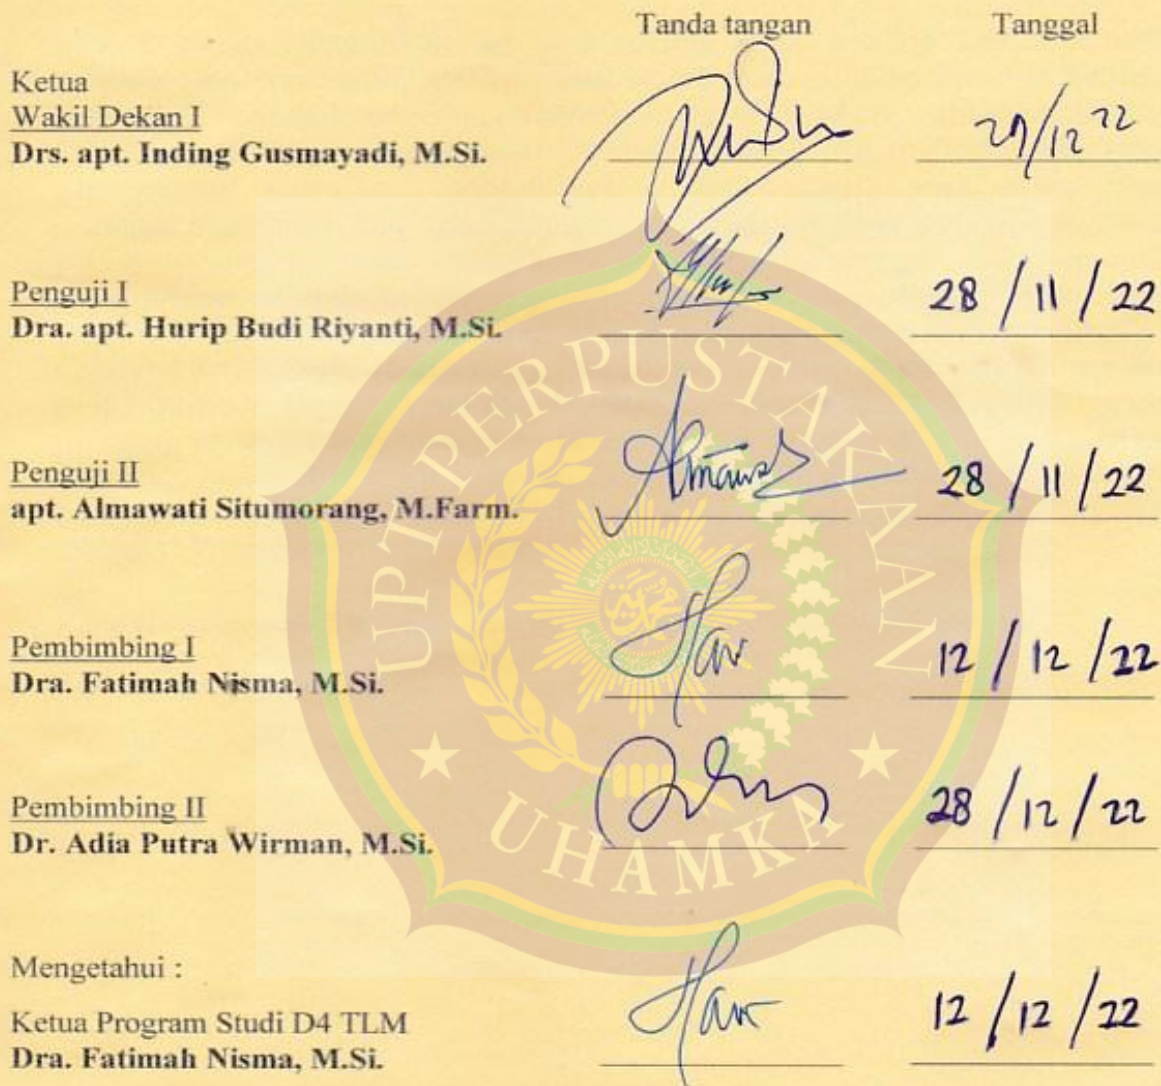 Tanda tangan Tanggal
Ketua
Wakil Dekan I
Drs. apt. Inding Gusmayadi, M.Si. 29/12 22
Penguji I
Dra. apt. Hurip Budi Riyanti, M.Si. 28/11/22
Penguji II
apt. Almawati Situmorang, M.Farm. 28/11/22
Pembimbing I
Dra. Fatimah Nisma, M.Si. 12/12/22
Pembimbing II
Dr. Adia Putra Wirman, M.Si. 28/12/22
Mengetahui :
Ketua Program Studi D4 TLM
Dra. Fatimah Nisma, M.Si. 12/12/22
UPT PERPUSTAKAAN
UHAMKA